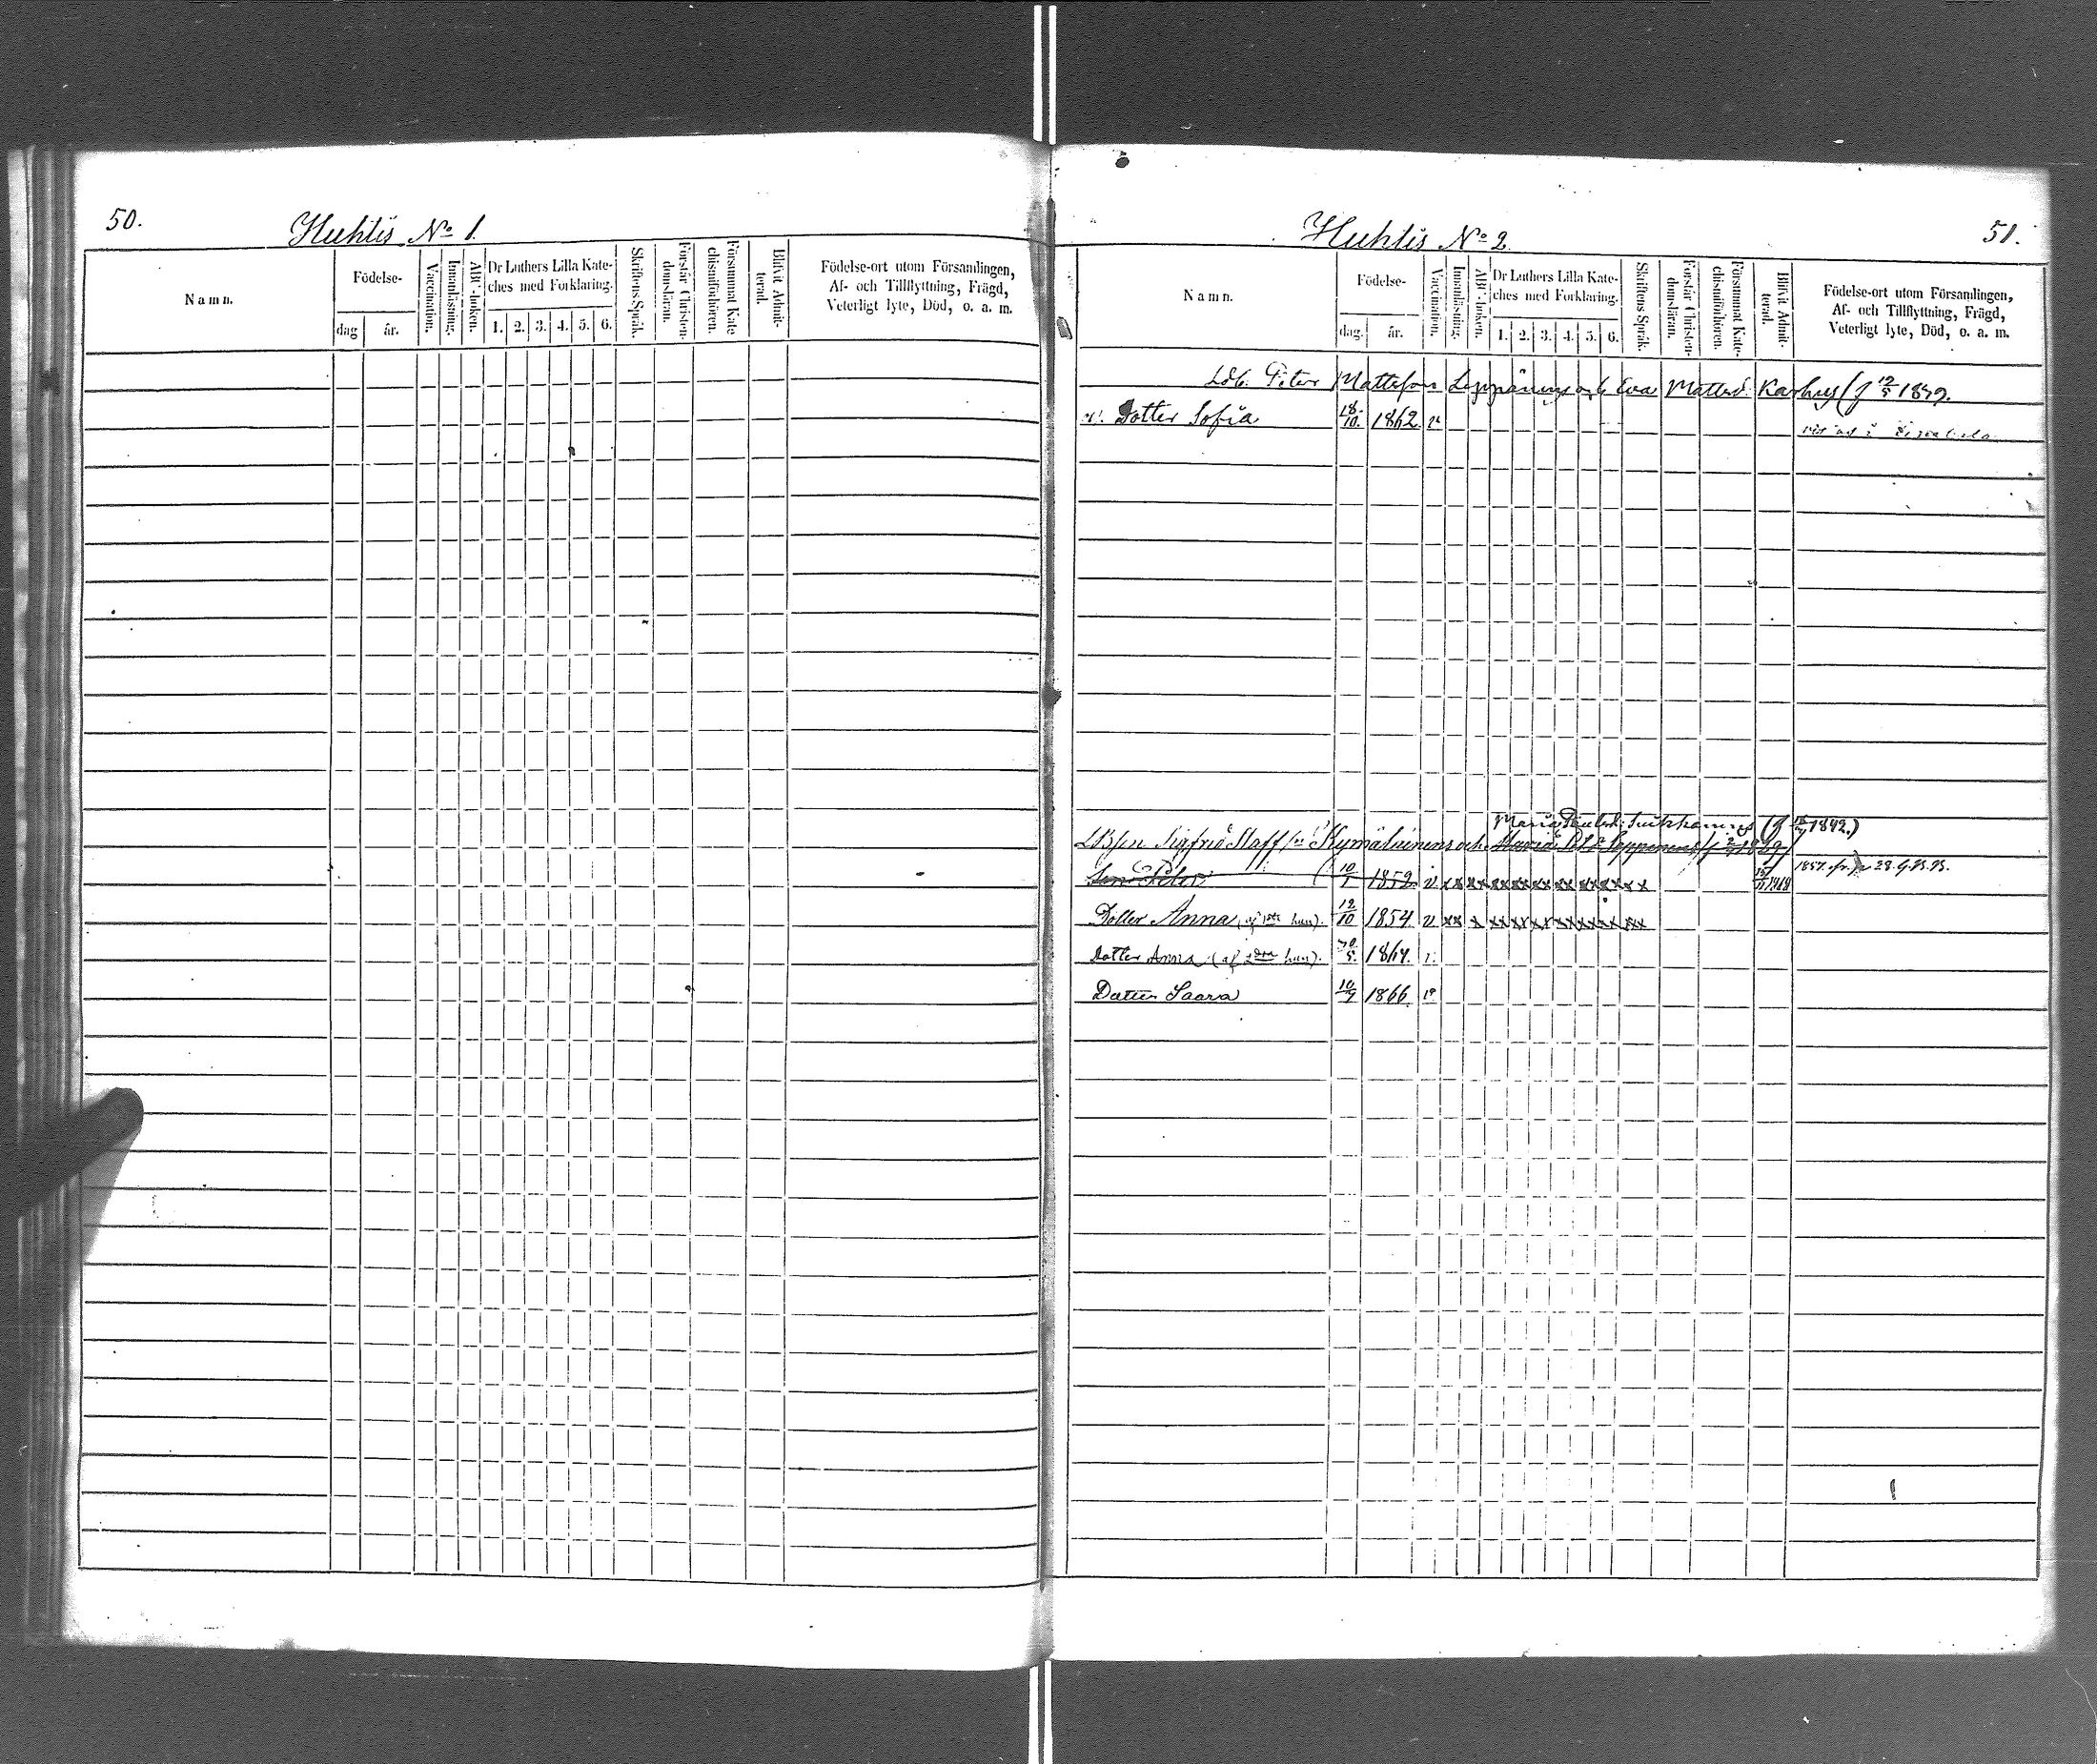 50.
Huhtis No 1.
Namn.
Födelse-
dag
år.
Vaccination.
Innanläsning.
ABC-boken.
Dr Luthers Lilla Kate-
ches med Förklaring.
1. 2. 3. 4. 5. 6.
Skriftens Språk.
Förstår Christen-
domsläran.
Försummat Kate
chismiförhören.
Blifvit Admit-
terad.
Födelse-ort utom Församlingen,
Af- och Tillflyttning, Frägd,
Veterligt lyte, Död, o. a. m.
Huhtis No 2.
51.
Namn.
Födelse-
dag.
år.
Vaccination.
Innanläsning.
ABC-boken.
Dr Luthers Lilla Kate-
ches med Forklaring.
1. 2. 3. 4. 5. 6.
Skriftens Språk.
Förstår Christen-
domsläran.
Försummat Kate-
chismiförhören.
Blifvit Admit-
terad.
Födelse-ort utom Församlingen,
Af- och Tillflyttning, Frägd,
Veterligt lyte, Död, o. a. m.
Peter Mattsson Eva Mattsd.
Dotter Sofia 18/10. 1862. v
Maria 1842.)
Sigfrid Staffss Kymäläinens och Maria
Son Peter 10/1 1852. v xx xx xx xx xx xx xx xx xx
Dotter Anna (af 1sta hus). 12/10 1854. v xx x xx xx xx xx xx xx xx
Dotter Anna (af 2dra hus). 1864.
Dotter Saara 10/9 1866 v